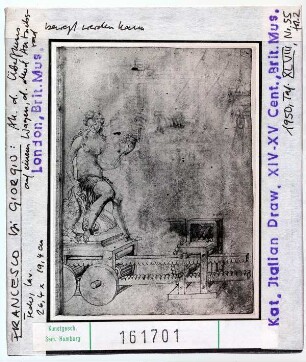 FRANCESCO DI GIORGIO: Ah. d. Überflusses
auf einem Wagen, d. durch ein Zahnrad
bewegt werden kann
Feder, lav.
26,4 x 19,4 cm
London, Brit. Mus.
Kat. Italian Draw. XIV-XV Cent., Brit. Mus.
1950, Taf. XLVIII, Nr. 55
Kunstgesch.
Sem. Hamburg
161701